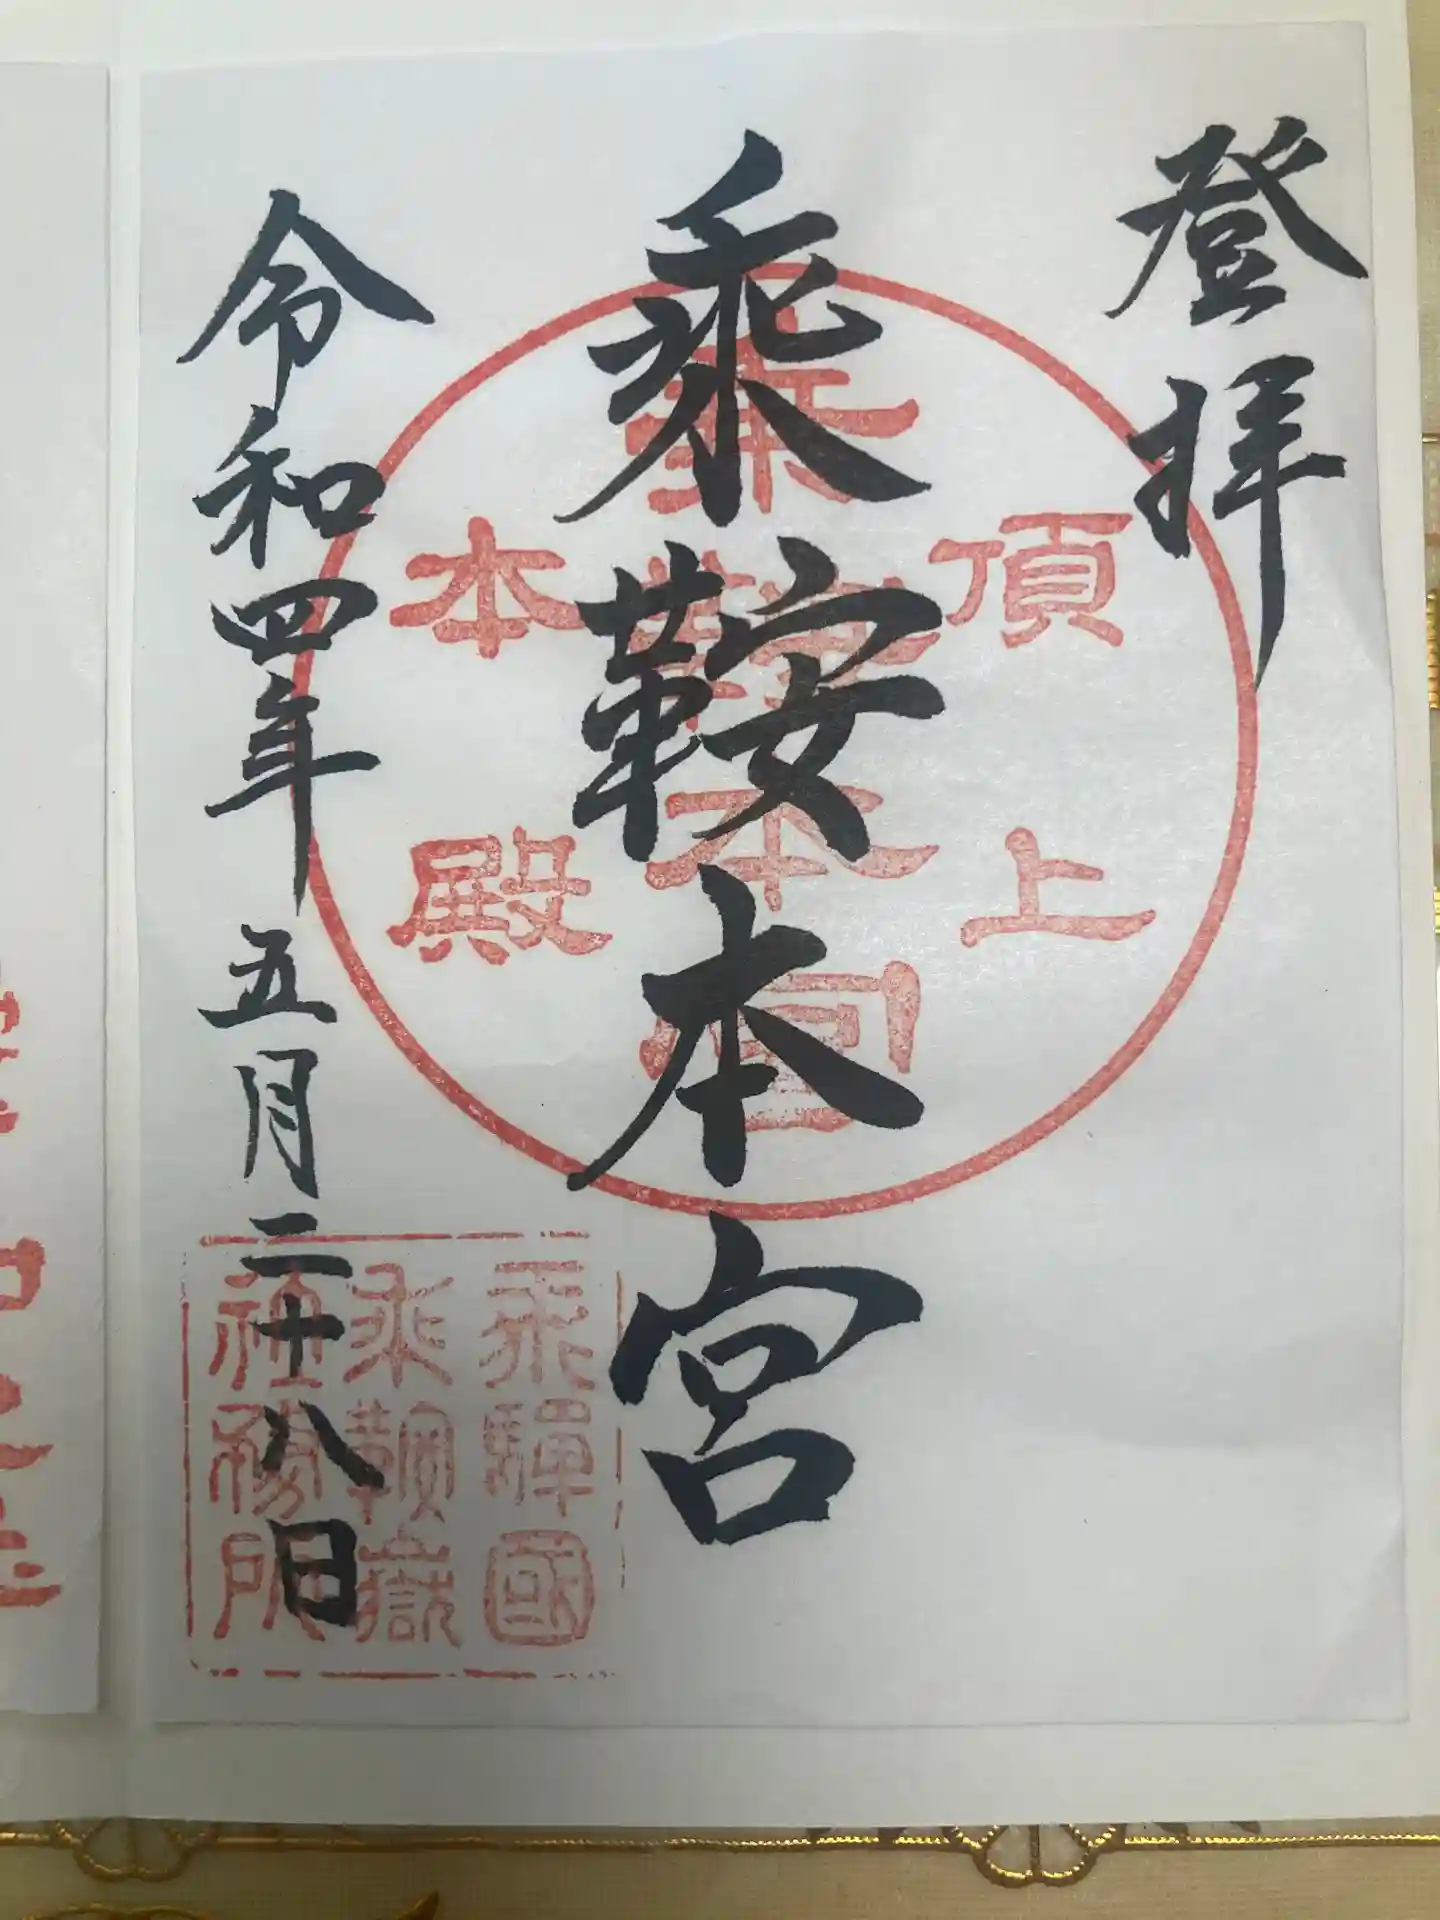 登拝
乗鞍本宮
令和四年五月二十八日
頂上
乗鞍本宮
本殿
乗鞍嶽
社務所